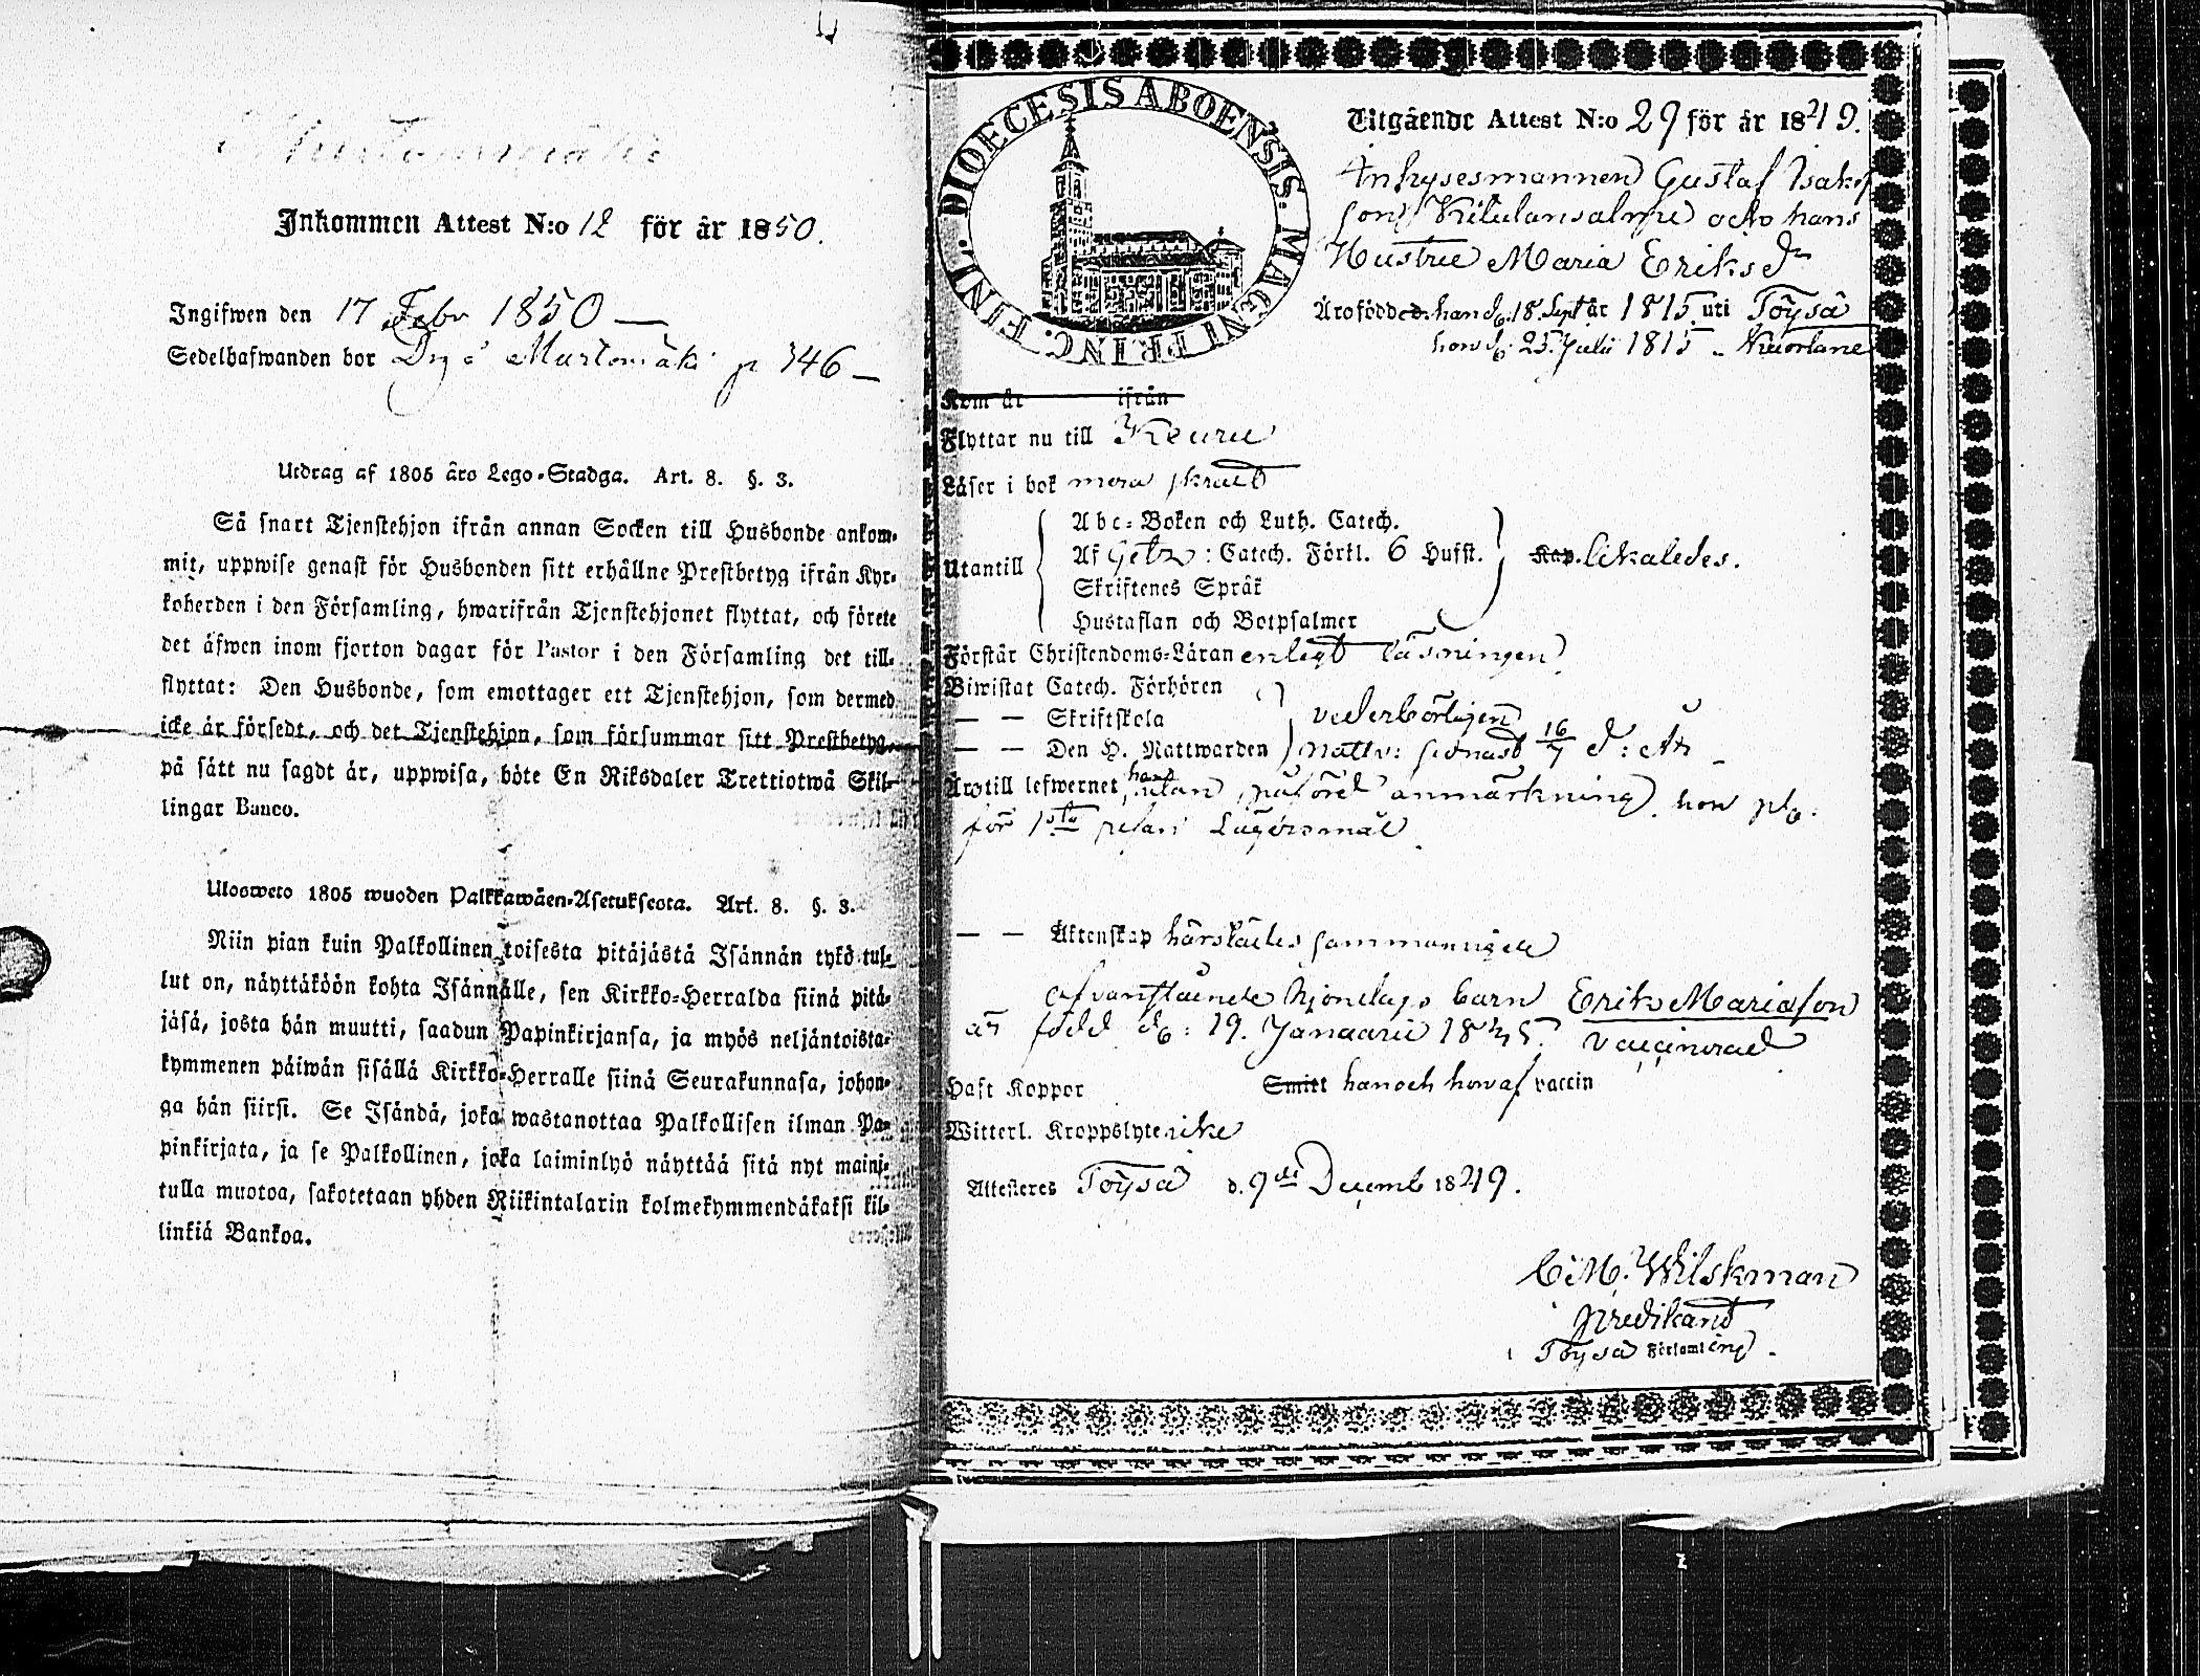 Murtomäki
Inkommen Attest N:o 12 för år 1850.
Ingifwen den 17 Febr 1850 —
Sedelhafwanden bor Dng å Murtomäki p 346 —
Utdrag af 1805 års Lego-Stadga. Art. 8. §. 3.
Så snart Tjenstehjon ifrån annan Socken till Husbonde ankom-
mit, uppwise genast för Husbonden sitt erhållne Prestbetyg ifrån Kyr-
koherden i den Församling, hwarifrån Tjenstehjonet flyttat, och förete
det äfwen inom fjorton dagar för Pastor i den Församling det till-
flyttat: Den Husbonde, som emottager ett Tjenstehjon, som dermed
icke är försedt, och det Tjenstehjon, som försummar sitt Prestbetyg,
på sätt nu sagdt är, uppwisa, böte En Riksdaler Trettiotwå Skil-
lingar Banco.
Ulosweto 1805 wuoden Palkkawäen-Asetuksesta. Art. 8. §. 3.
Niin pian kuin Palkollinen toisesta pitäjästä Isännän tykö tul-
lut on, näyttäköön kohta Isännälle, sen Kirkko-Herralda siinä pitä-
jäsä, josta hän muutti, saadun Papinkirjansa, ja myös neljäntoista-
kymmenen päiwän sisällä Kirkko-Herralle siinä Seurakunnasa, johon-
ga hän siirsi. Se Isändä, joka wastanottaa Palkollisen ilman Pa-
pinkirjata, ja se Palkollinen, joka laiminlyö näyttää sitä nyt maini-
tulla muotoa, sakotetaan yhden Riikintalarin kolmekymmendäkaksi kil-
linkiä Bankoa.
DIOECESIS ABOENSIS. MAGNI PRINC. FINL.
Utgående Attest N:o 29 för år 1849.
Inhysesmannen Gustaf Isaks
son Kitulansalmi och hans
Hustru Maria Eriksdr
Äro födde: han d. 18 Sept år 1815 uti Töysä
hon d. 25 Julii 1815 - Kuortane
Kom år ifrån
Flyttar nu till Keuru
Läser i bok mera skralt
Utantill
Abc-Boken och Luth. Catech.
Af Getz: Catech. Förkl. 6 Hufst.
Skriftenes Språk
Hustaflan och Botpsalmer
Kap. likaledes.
Förstår Christendoms-Läran enligt läsningen
Biwistat Catech. Förhören
— — Skriftskola vederbörligen
— — Den H. Nattwarden nattv: senast 16/7 d: år
Äro till lefwernet, han utan påförd anmärkning, hon pl.
för 1sta resan Lägersmål
— — Äktenskap härstädes sammanvigde
Ofvanstående hjonelags barn Erik Mariason
är född d. 19. Januarii 1845. vaccinerad
Haft Koppor Smitt han och hon af vaccin
Witterl. Kroppslyte icke
Attesteres Töysä d. 9de Decemb 1849.
C. M. Wilskman
Predikant
Töysä Församling.